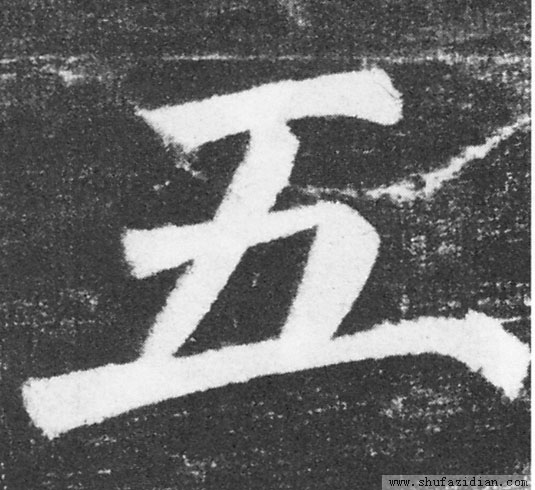 五
www.shufazidian.com